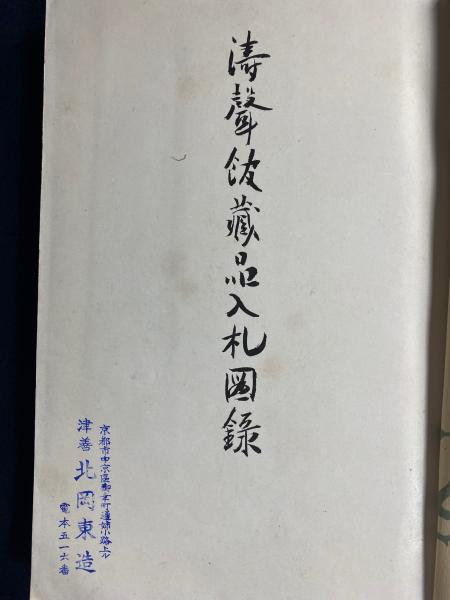 濤聲館藏品入札圖錄
京都市中京區御幸町通姉小路上ル
津善 北岡東造
電本五一六番